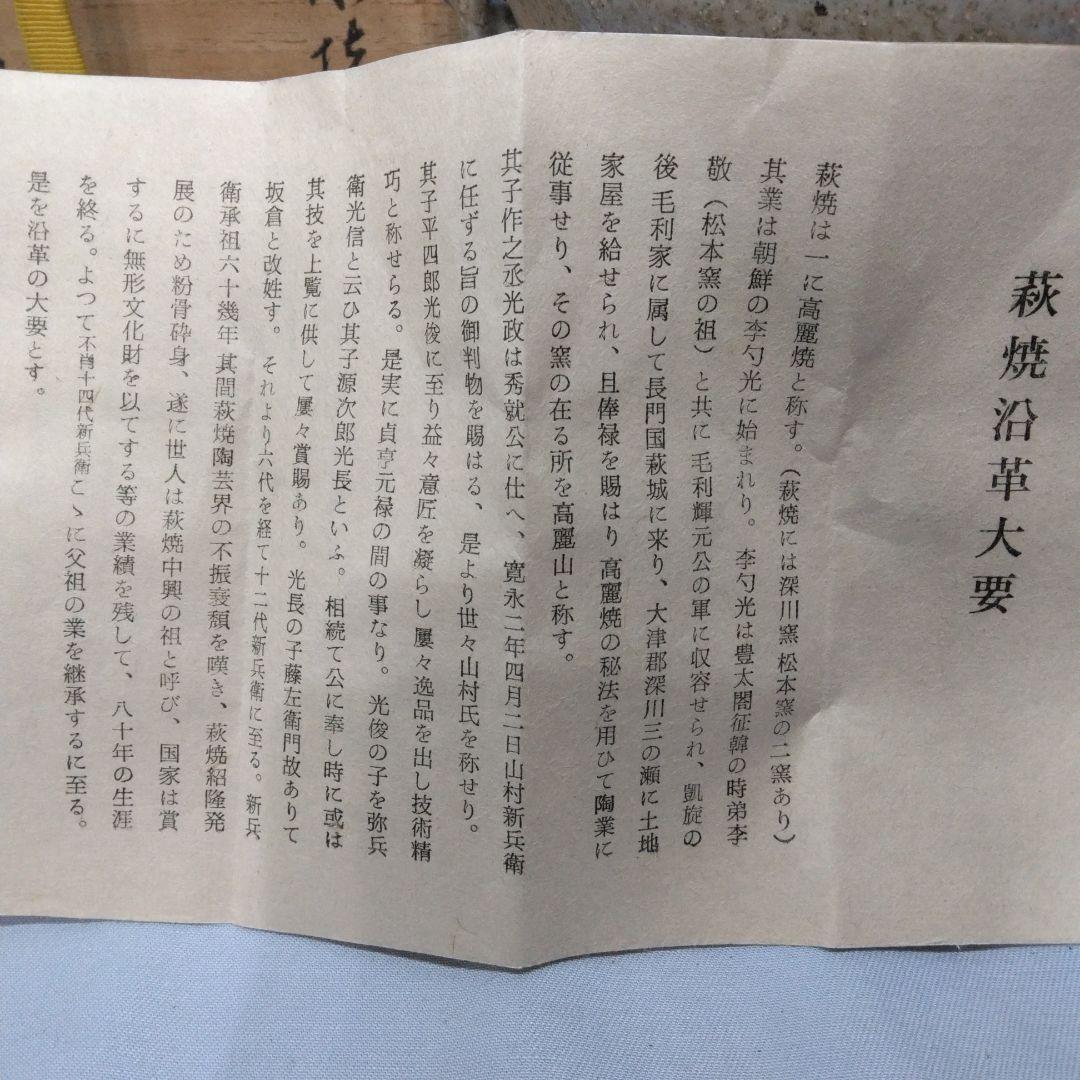 萩焼沿革大要
萩焼は一に高麗焼と称す。（萩焼には深川窯 松本窯の二窯あり）
其業は朝鮮の李勺光に始まれり。李勺光は豊太閤征韓の時弟李
敬（松本窯の祖）と共に毛利輝元公の軍に収容せられ、凱旋の
後 毛利家に属して長門国萩城に来り、大津郡深川三の瀬に土地
家屋を給せられ、且俸禄を賜はり 高麗焼の秘法を用ひて陶業に
従事せり、その窯の在る所を高麗山と称す。
其子作之丞光政は秀就公に仕へ、寛永二年四月二日山村新兵衛
に任ずる旨の御判物を賜はる、是より世々山村氏を称せり。
其子平四郎光俊に至り益々意匠を凝らし 屢々逸品を出し技術精
巧と称せらる。是実に貞亨元禄の間の事なり。光俊の子を弥兵
衛光信と云ひ其子源次郎光長といふ。相続て公に奉し時に或は
其技を上覧に供して屢々賞賜あり。光長の子藤左衛門故ありて
坂倉と改姓す。それより六代を経て十二代新兵衛に至る。新兵
衛承祖六十幾年 其間萩焼陶芸界の不振衰頽を嘆き、萩焼紹隆発
展のため粉骨砕身、遂に世人は萩焼中興の祖と呼び、国家は賞
するに無形文化財を以てする等の業績を残して、八十年の生涯
を終る。よつて不肖十四代新兵衛こゝに父祖の業を継承するに至る。
是を沿革の大要とす。